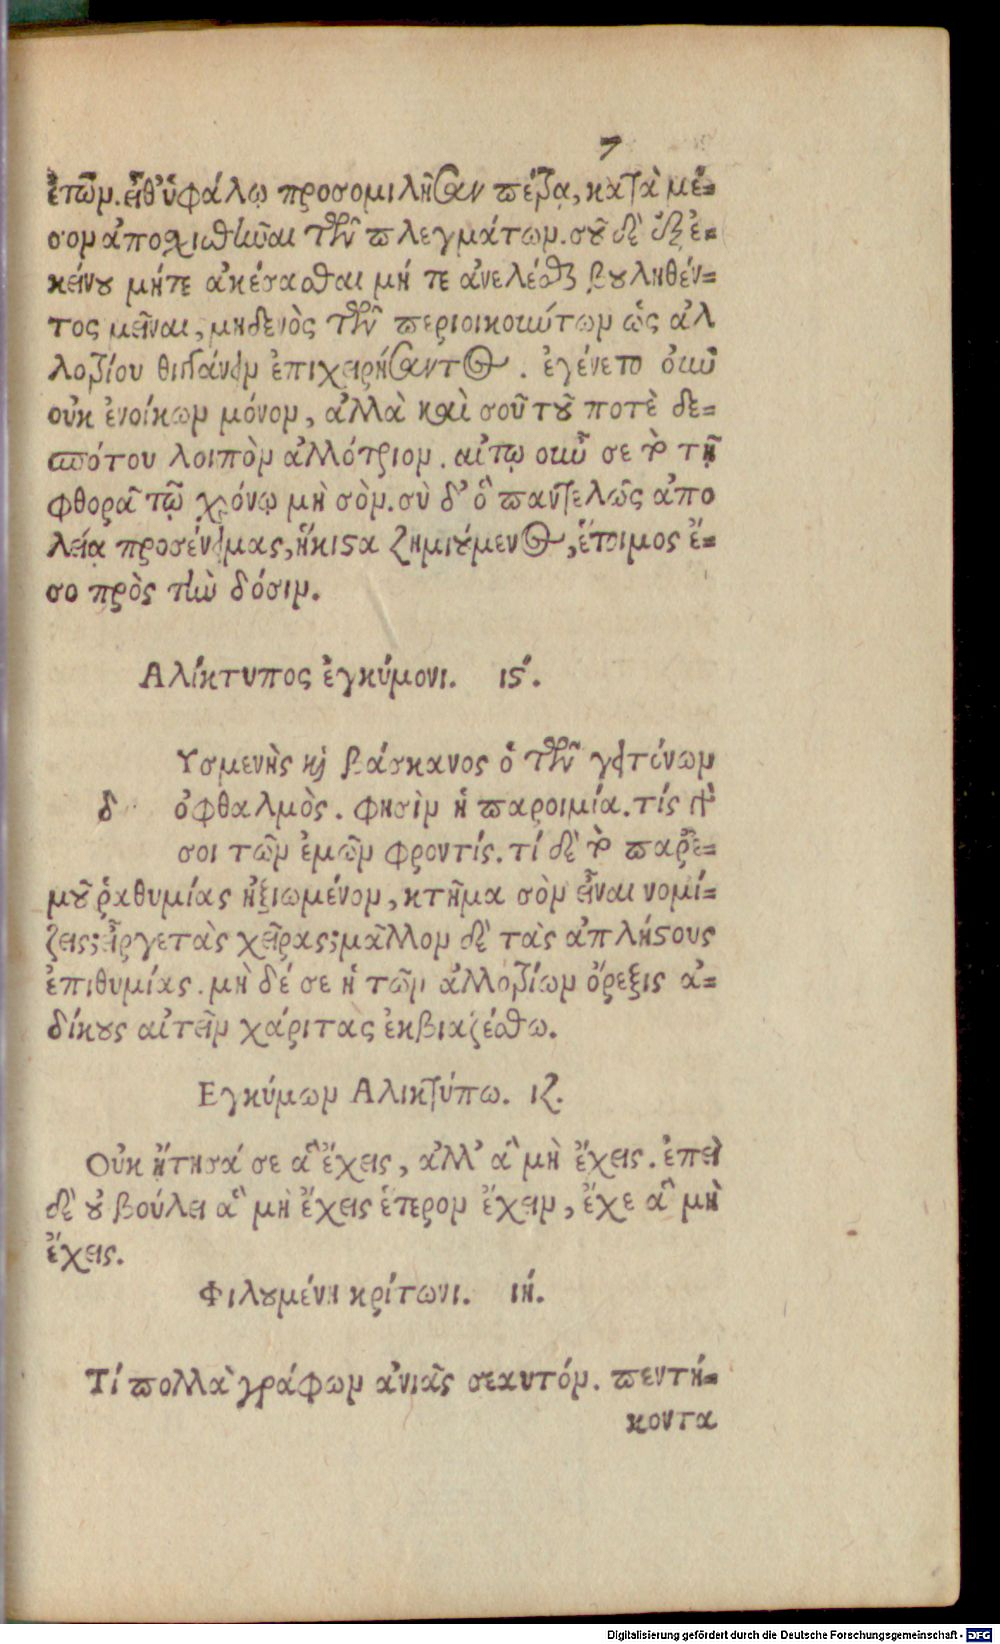 7
ἐτῶν. εἶθ' ὑφάλῳ προσομιλῆσαν πέτρᾳ, κατὰ μέ=
σον ἀποσχισθῆναι τῶν πλεγμάτων. σοῦ δὲ ἐξ ἐ=
κείνου μήτε ἀκέσασθαι μή τε ἀνελέσθαι βουληθέν=
τος μεῖναι, μηδενὸς τῶν περιοικούντων ὡς ἀλ
λοτρίου θιγγάνειν ἐπιχειρήσαντος. ἐγένετο οὖν
οὐκ ἐνοίκων μόνον, ἀλλὰ καὶ σοῦ τοῦ ποτὲ δε=
σπότου λοιπὸν ἀλλότριον. αἰτῶ οὖν σε τὸ τῇ
φθορᾷ τῷ χρόνῳ μὴ σὸν. σὺ δ' ὃ παντελῶς ἀπο
λείᾳ προσένειμας, ἥκιστα ζημιούμενος, ἕτοιμος ἔ=
σο πρὸς τὴν δόσιν.
Αλίκτυπος ἐγκύμονι. ιϛ´.
Υσμενὴς καὶ βάσκανος ὁ τῶν γειτόνων
δ ὀφθαλμὸς. φησὶν ἡ παροιμία. τίς γὰρ
σοι τῶν ἐμῶν φροντίς. τί δὲ τὸ παρ' ἐ=
μοῦ ῥαθυμίας ἠξιωμένον, κτῆμα σὸν εἶναι νομί=
ζεις; εἶργε τὰς χεῖρας; μᾶλλον δὲ τὰς ἀπλήστους
ἐπιθυμίας. μὴ δέ σε ἡ τῶν ἀλλοτρίων ὄρεξις ἀ=
δίκους αἰτεῖν χάριτας ἐκβιαζέσθω.
Εγκύμων Αλικτύπω. ιζ.
Οὐκ ᾔτησά σε ἃ ἔχεις, ἀλλ' ἃ μὴ ἔχεις. ἐπεὶ
δὲ οὐ βούλει ἃ μὴ ἔχεις ἕτερον ἔχειν, ἔχε ἃ μὴ
ἔχεις.
Φιλουμένη κρίτωνι. ιή.
Τί πολλὰ γράφων ἀνιᾷς σεαυτόν. πεντή=
κοντα
Digitalisierung gefördert durch die Deutsche Forschungsgemeinschaft - DFG